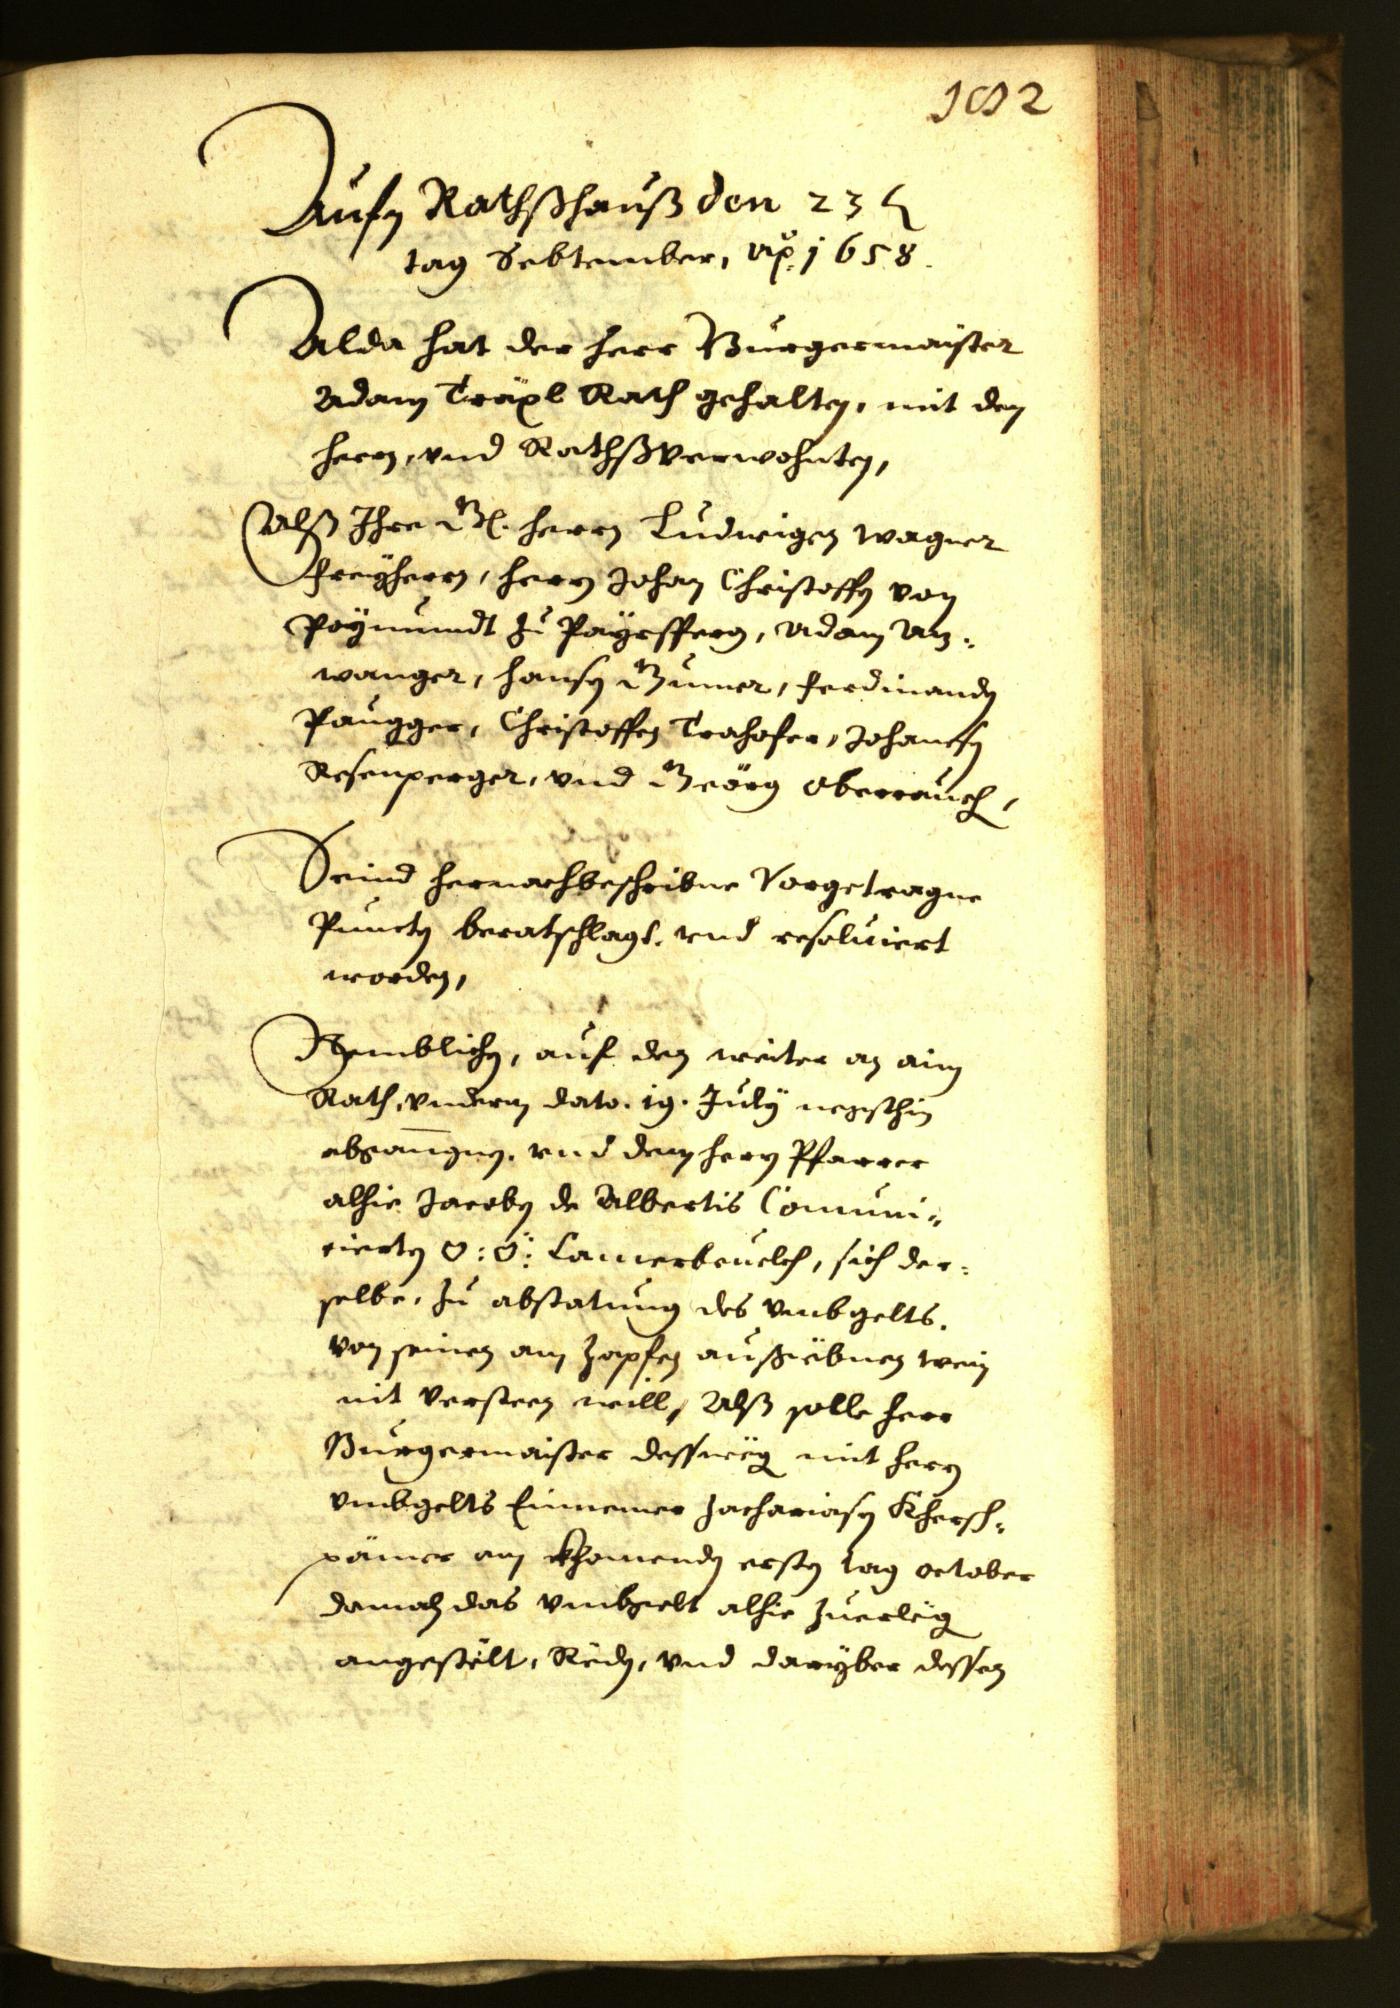 182
Aufn Rathßhauß den 23
tag Sebtember, Aõ. 1658.
Alda hat der herr Burgermaister
Adam Träxl Rath gehalten, mit den
herrn, und Rathßverwohnten,
Alß Ihre Gl. herrn Ludwigen Wagner
freyherrn, herrn Johan Christoffn von
Poymundt zu Payrsperg, Adam An-
wanger, Hansn Gumer, Ferdinandn
Paugger, Christoffen Trahofer, Johansn
Resenperger, und Geörg Oberrauch,
Seind hernachbeschribne Vorgetragne
Punctn beratschlagt. und resolviert
worden,
Nemblichn, auf den weiter an ain
Rath, underm dato. 19. July negsthin
abgangnen. und dem hern Pfarrer
alhie Jacobn de Albertis Comuni-
cierten O: Ö: Camerbeuelch, sich der-
selbe, zu abstatung des umbgelts.
von seinen am Zapfen außgebnen wein
nit versteen will, Alß solle herr
Burgermaister dessweg mit hern
umbgelts Einnemer Zachariasn Khersch-
pämer am khomendn ersten tag october
damals das umbgelt alhie zuerleg
angestelt, Redn, und darüber dessen